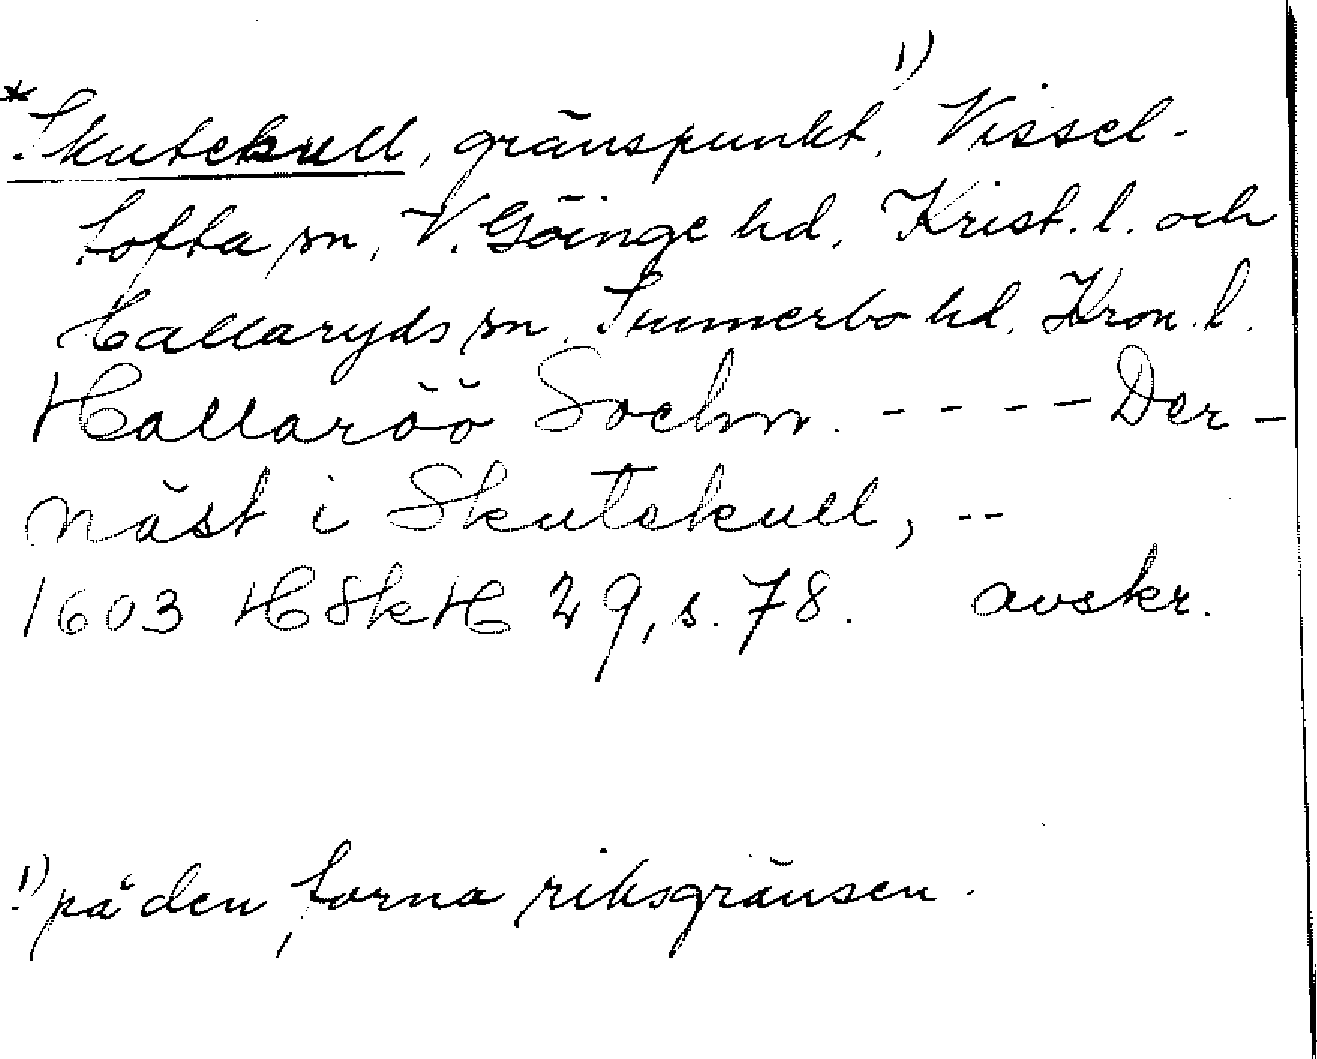 *Skutekull, gränspunkt,¹⁾ Vissel-
tofta sn, V. Göinge hd, Krist. l. och
Hallaryds sn, Sunnerbo hd, Kron. l.
Hallaröö Sochn. - - - - Der-
näst i Skutekull, --
1603 HSkH 29, s. 78. avskr.
¹⁾ på den forna riksgränsen.